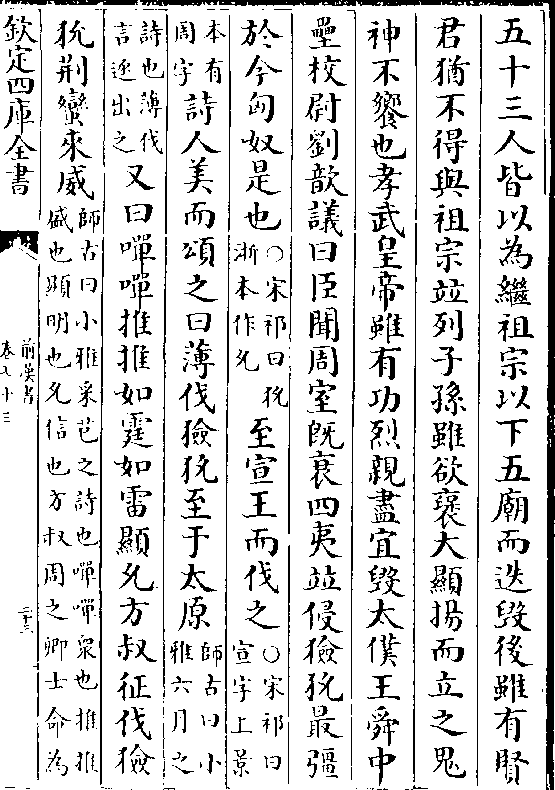 五十三人皆以為繼祖宗以下五廟而迭毀後雖有賢
君猶不得與祖宗竝列子孫雖欲褒大顯揚而立之鬼
神不饗也孝武皇帝雖有功烈親盡宜毀太僕王舜中
壘校尉劉歆議曰臣聞周室既衰四夷竝侵獫狁最彊
於今匈奴是也○宋祁曰狁浙本作允至宣王而伐之○宋祁曰宣字上景
本有周字詩人美而頌之曰薄伐獫狁至于太原師古曰小雅六月之
詩也薄伐言逐出之又曰嘽嘽推推如霆如雷顯允方叔征伐獫
狁荆蠻來威師古曰小雅采芑之詩也嘽嘽衆也推推盛也顯明也允信也方叔周之卿士命為
欽定四庫全書
前漢書
卷七十三
二十三